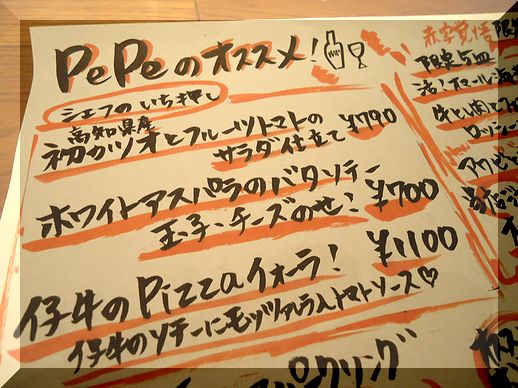 PePeのオススメ!
シェフのいち押し
高知県産
初ガツオとフルーツトマトの
サラダ仕立て ¥790
ホワイトアスパラのバタソテー
玉子・チーズのせ! ¥700
仔牛のPizzaイォーラ! ¥1100
仔牛のソテーにモッツァレラ入トマトソース♡
パクリング
赤字覚悟 限
限定5皿
活!オマール海老
牛とし肉と
ロッシー